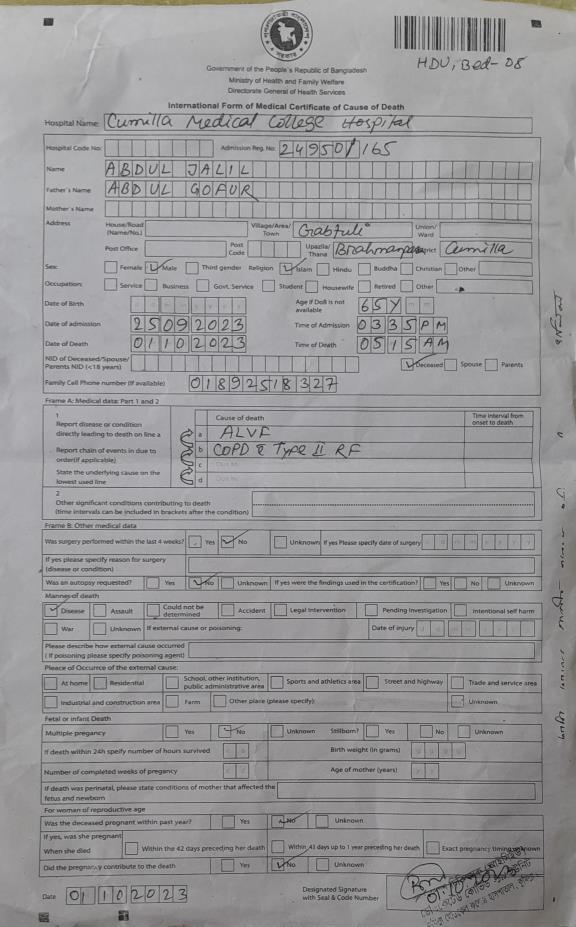 HDU, Bed- 08
Government of the People's Republic of Bangladesh
Ministry of Health and Family Welfare
Directorate General of Health Services
International Form of Medical Certificate of Cause of Death
Hospital Name: Cumilla Medical College Hospital
Hospital Code No: Admission Reg. No: 24950/165
Name ABDUL JALIL
Father's Name ABDUL GOFUR
Mother's Name
Address House/Road (Name/No.) Village/Area/ Town Union/ Ward
Post Office Post Code Upazila/ Thana District Cumilla
Sex: Female Male Third gender Religion Islam Hindu Buddha Christian Other
Occupation: Service Business Govt. Service Student Housewife Retired Other
Date of Birth Age if DoB is not available 65Y
Date of admission 25092023 Time of Admission 0335PM
Date of Death 01102023 Time of Death 0515AM
NID of Deceased/Spouse/ Parents NID (<18 years) Deceased Spouse Parents
Family Cell Phone number (if available) 01892518327
Frame A: Medical data: Part 1 and 2
1 Cause of death Time interval from onset to death
Report disease or condition directly leading to death on line a
a ALVF
Report chain of events in due to order(if applicable)
b COPD c Type II RF
c Due to:
State the underlying cause on the lowest used line
d Due to:
2
Other significant conditions contributing to death
(time intervals can be included in brackets after the condition)
Frame B: Other medical data
Was surgery performed within the last 4 weeks? Yes No Unknown If yes Please specify date of surgery
If yes please specify reason for surgery
(disease or condition)
Was an autopsy requested? Yes No Unknown If yes were the findings used in the certification? Yes No Unknown
Manner of death
Disease Assault Could not be determined Accident Legal Intervention Pending Investigation Intentional self harm
War Unknown If external cause or poisoning: Date of injury
Please describe how external cause occurred
(If poisoning please specify poisoning agent)
Pleace of Occurce of the external cause:
At home Residential School, other institution, public administrative area Sports and athletics area Street and highway Trade and service area
Industrial and construction area Farm Other place (please specify): Unknown
Fetal or infant Death
Multiple pregancy Yes No Unknown Stillborn? Yes No Unknown
If death within 24h speify number of hours survived Birth weight (in grams)
Number of completed weeks of pregancy Age of mother (years)
If death was perinatal, please state conditions of mother that affected the
fetus and newborn
For woman of reproductive age
Was the deceased pregnant within past year? Yes No Unknown
If yes, was she pregnant
When she died Within the 42 days preceding her death Within 43 days up to 1 year preceding her death Exact pregnancy timing unknown
Did the pregnancy contribute to the death Yes No Unknown
Date 01102023 Designated Signature
with Seal & Code Number